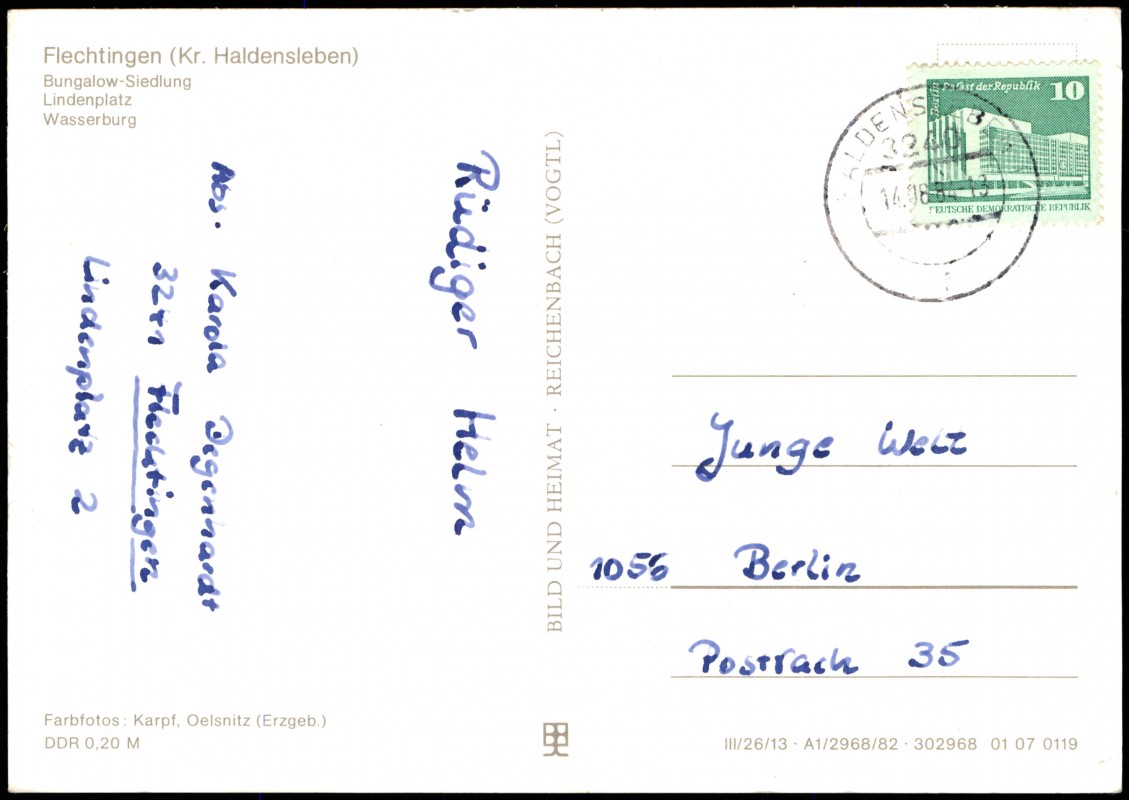 Flechtingen (Kr. Haldensleben)
Bungalow-Siedlung
Lindenplatz
Wasserburg
Rüdiger Helm
Abs. Karola Degenhardt
3241 Flechtingen
Lindenplatz 2
BILD UND HEIMAT · REICHENBACH (VOGTL)
Berlin Palast der Republik 10
DEUTSCHE DEMOKRATISCHE REPUBLIK
HALDENSLEBEN
3240
14.08.84-13
Junge Welt
1056 Berlin
Postfach 35
Farbfotos: Karpf, Oelsnitz (Erzgeb.)
DDR 0,20 M
III/26/13 · A1/2968/82 · 302968 01 07 0119